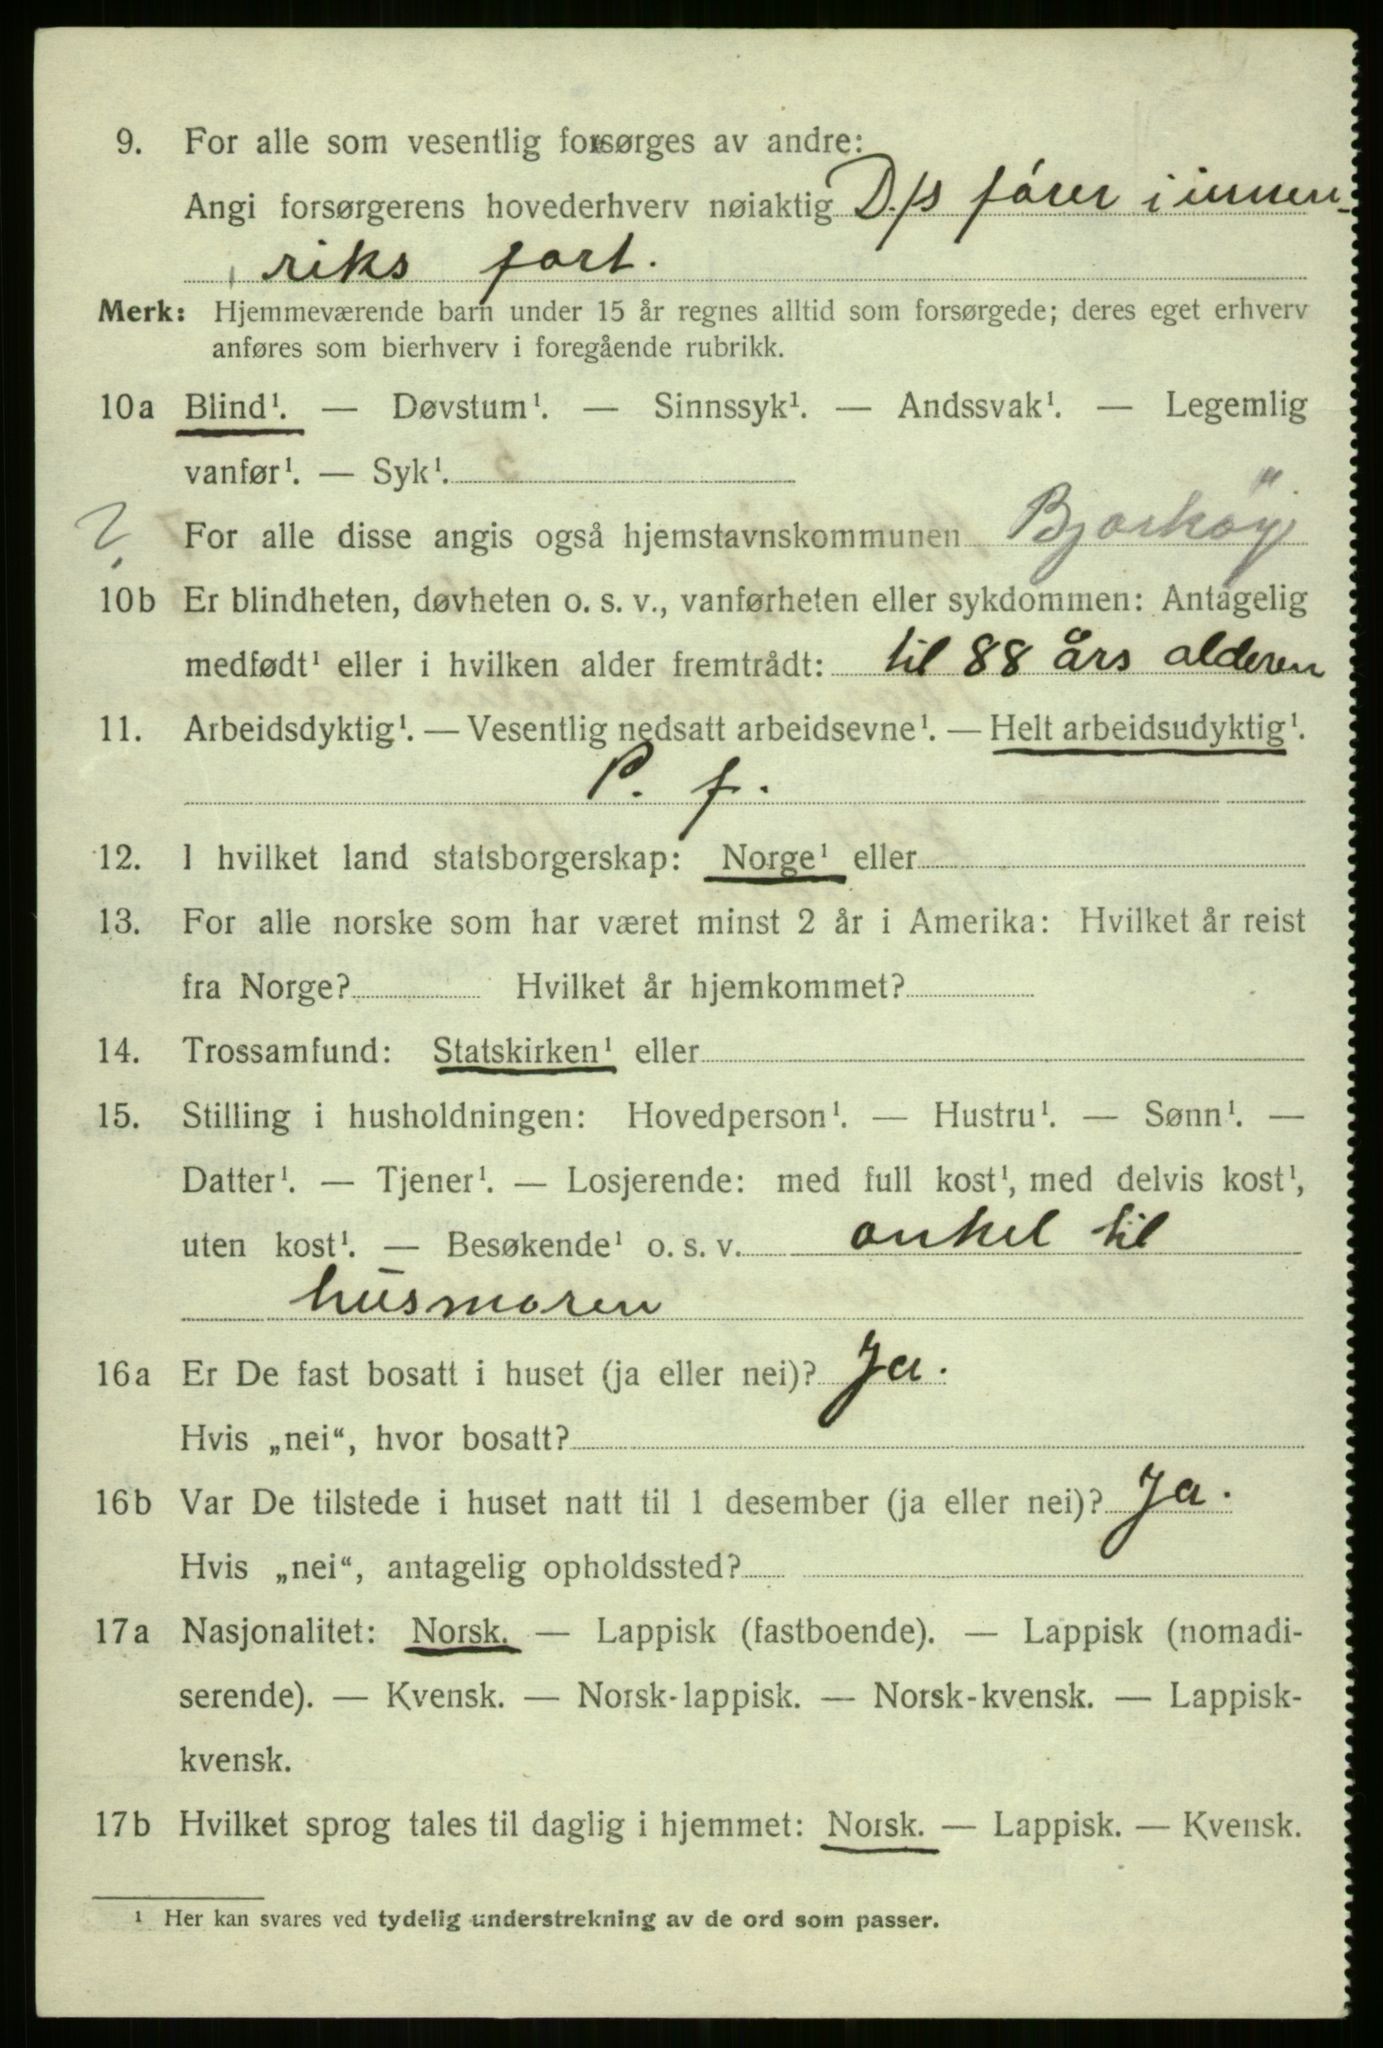 9. For alle som vesentlig forsørges av andre:
Angi forsørgerens hovederhverv nøiaktig D/s fører i innen-
riks fart.
Merk: Hjemmeværende barn under 15 år regnes alltid som forsørgede; deres eget erhverv
anføres som bierhverv i foregående rubrikk.
10a Blind¹. — Døvstum¹. — Sinnssyk¹. — Andssvak¹. — Legemlig
vanfør¹. — Syk¹.
? For alle disse angis også hjemstavnskommunen Bjarköy
10b Er blindheten, døvheten o. s. v., vanførheten eller sykdommen: Antagelig
medfødt¹ eller i hvilken alder fremtrådt: til 88 års alderen
11. Arbeidsdyktig¹. — Vesentlig nedsatt arbeidsevne¹. — Helt arbeidsudyktig¹.
P. f.
12. I hvilket land statsborgerskap: Norge¹ eller
13. For alle norske som har været minst 2 år i Amerika: Hvilket år reist
fra Norge? Hvilket år hjemkommet?
14. Trossamfund: Statskirken¹ eller
15. Stilling i husholdningen: Hovedperson¹. — Hustru¹. — Sønn¹. —
Datter¹. — Tjener¹. — Losjerende: med full kost¹, med delvis kost¹,
uten kost¹. — Besøkende¹ o. s. v. onkel til
husmoren
16a Er De fast bosatt i huset (ja eller nei)? Ja.
Hvis „nei“, hvor bosatt?
16b Var De tilstede i huset natt til 1 desember (ja eller nei)? Ja.
Hvis „nei“, antagelig opholdssted?
17a Nasjonalitet: Norsk. — Lappisk (fastboende). — Lappisk (nomadi-
serende). — Kvensk. — Norsk-lappisk. — Norsk-kvensk. — Lappisk-
kvensk.
17b Hvilket sprog tales til daglig i hjemmet: Norsk. — Lappisk. — Kvensk.
¹ Her kan svares ved tydelig understrekning av de ord som passer.